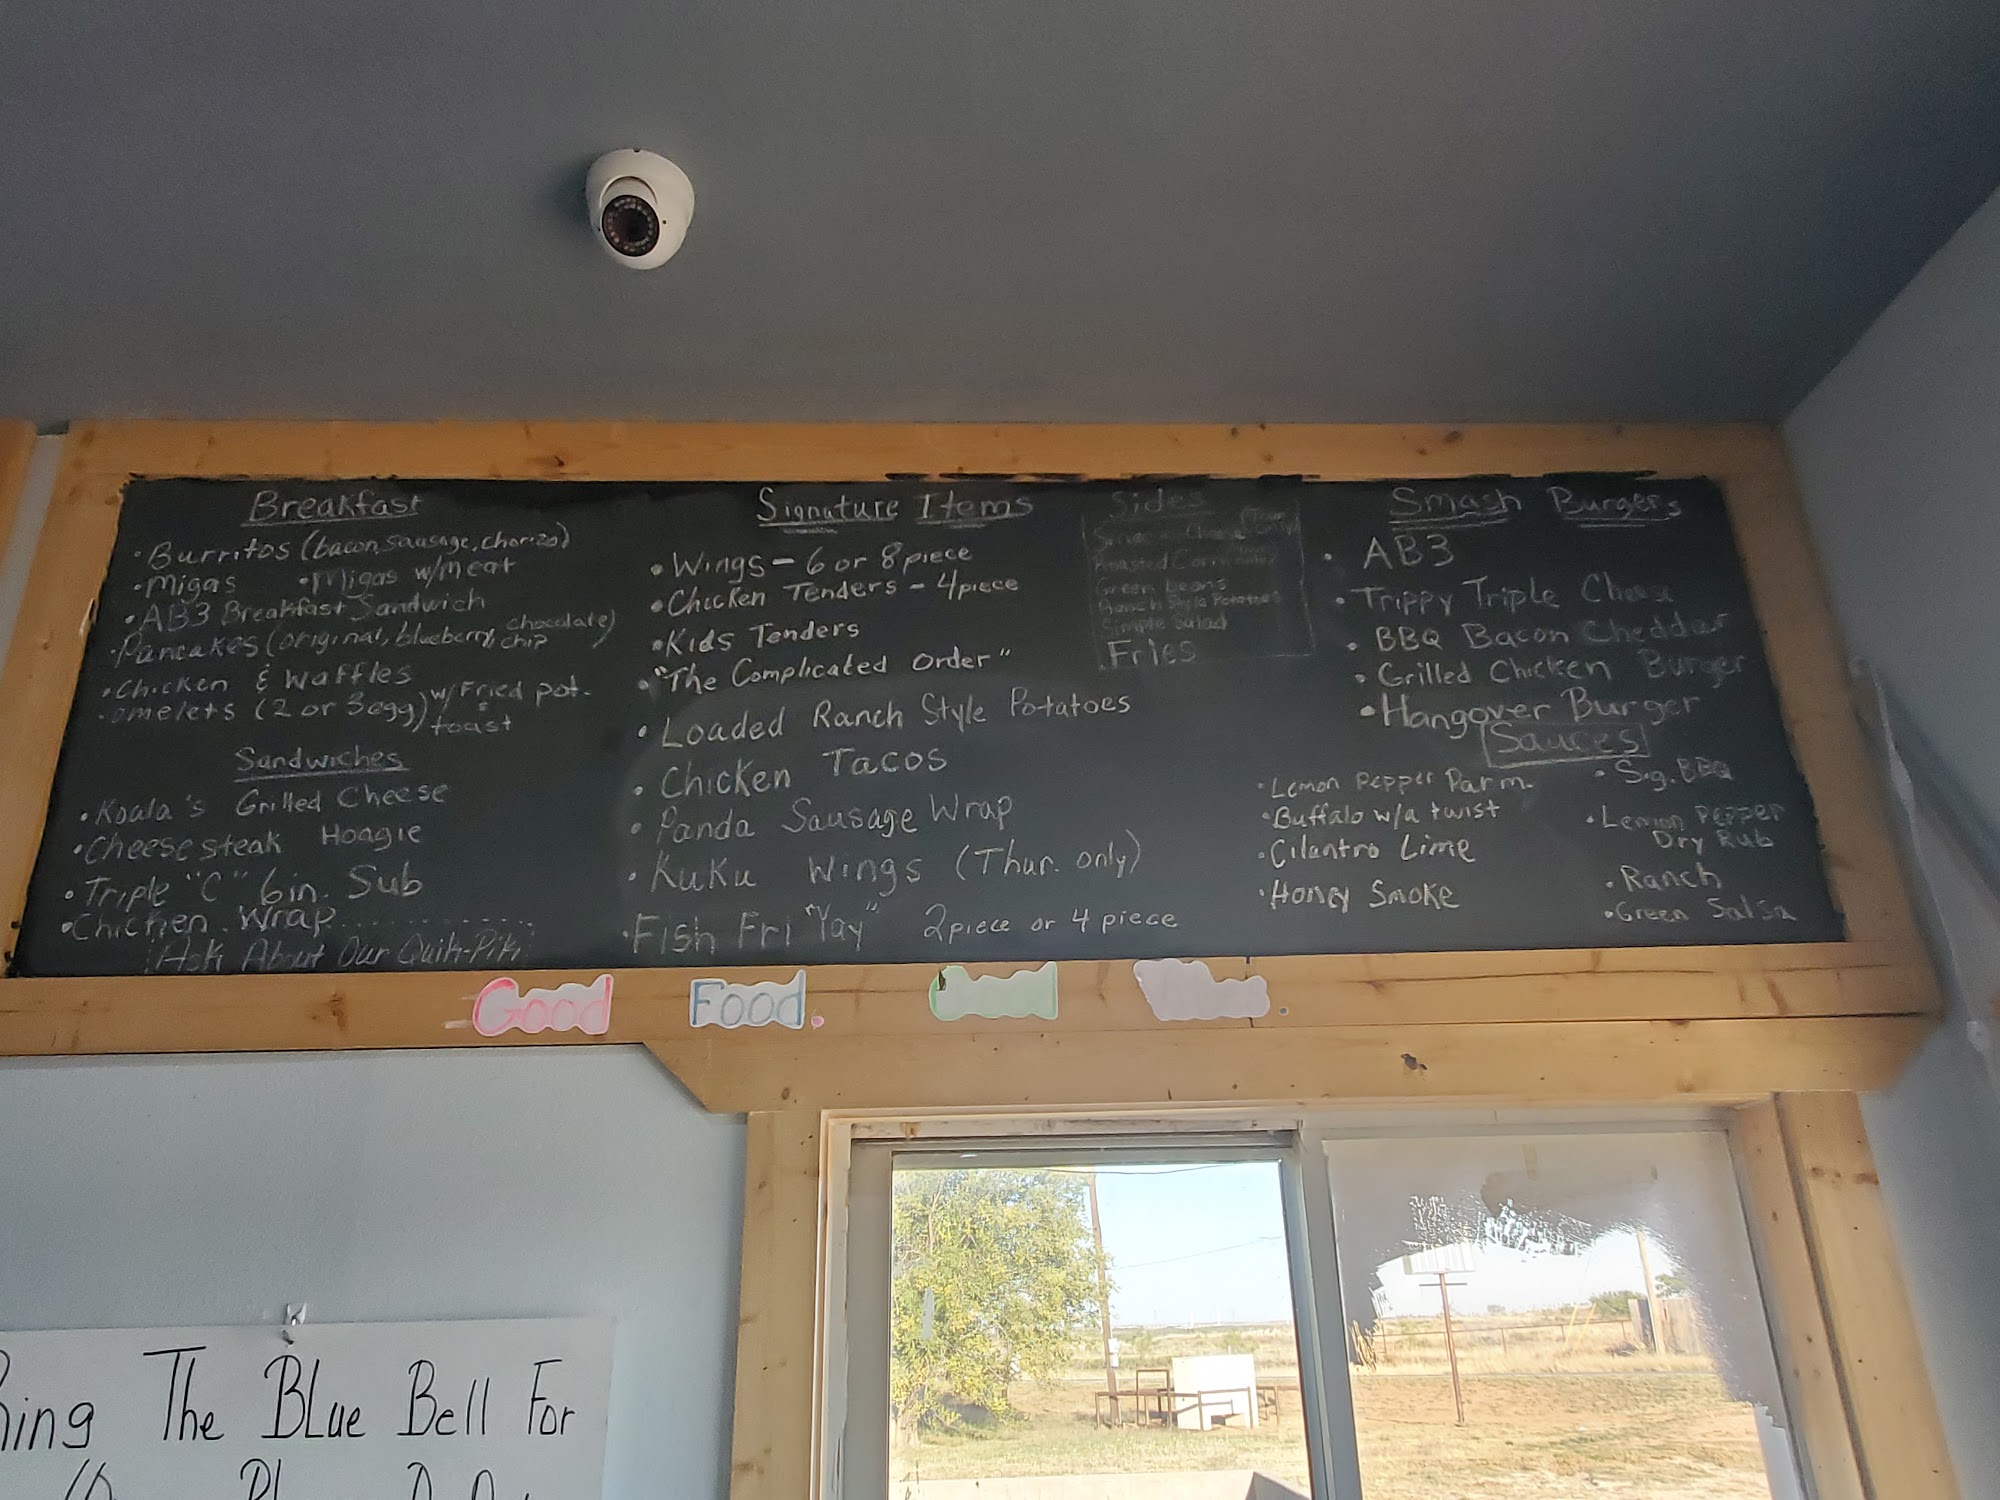 Breakfast
• Burritos (bacon, sausage, chorizo)
• Migas • Migas w/meat
• AB3 Breakfast Sandwich
• Pancakes (original, blueberry, chocolate chip)
• Chicken & Waffles
• omelets (2 or 3 egg) w/ Fried pot. & toast
Sandwiches
• Koala's Grilled Cheese
• Cheesesteak Hoagie
• Triple "C" 6in. Sub
• Chicken Wrap
Ask About Our Quik-Pik
Signature Items
• Wings - 6 or 8 piece
• Chicken Tenders - 4 piece
• Kids Tenders
• "The Complicated Order"
• Loaded Ranch Style Potatoes
• Chicken Tacos
• Panda Sausage Wrap
• KuKu Wings (Thur. only)
• Fish Fri "Yay" 2 piece or 4 piece
Sides
Roasted Corn
Green beans
Ranch Style Potatoes
Simple Salad
• Fries
Smash Burgers
• AB3
• Trippy Triple Cheese
• BBQ Bacon Cheddar
• Grilled Chicken Burger
• Hangover Burger
Sauces
• Lemon Pepper Parm.
• Buffalo w/a twist
• Cilantro Lime
• Honey Smoke
• Sig. BBQ
• Lemon Pepper
Dry Rub
• Ranch
• Green Salsa
Good Food.
The BLue Bell For